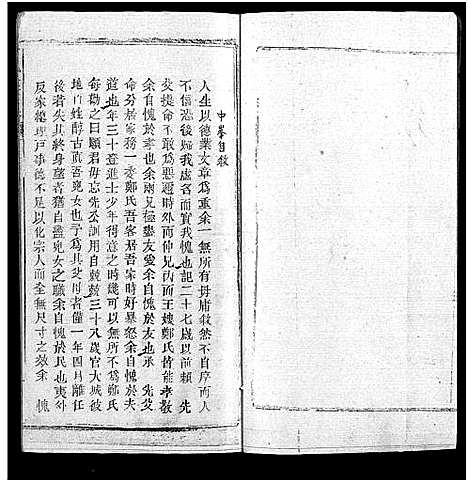 中峯自敘
人生以德業文章為重余一無所有毋庸敘然不自序而人
不信恐後歸我虛名而實我愧也記二十七歲以前賴 先
父提命不敢為惡邇時外而仲兄內而王嫂鄭氏皆能孝敬
余自愧於孝也余兩兄極盡友愛余自愧於友也承 先父
命分居家務一委鄭氏吾客居吾家時好暴怒余自愧於夫
道也年三十登進士少年得意之時幾可以無所不為鄭氏
每勸之曰願君毋忘先公訓用自兢兢三十八歲官大城彼
地百姓醇古真吾兒女也乎為其父母者僅一年四月離任
後若失其終身望者猶自盡兒女之職余自愧於民也夷外
反家總理戶事德不足以化宗人而全無尺寸之效余 愧